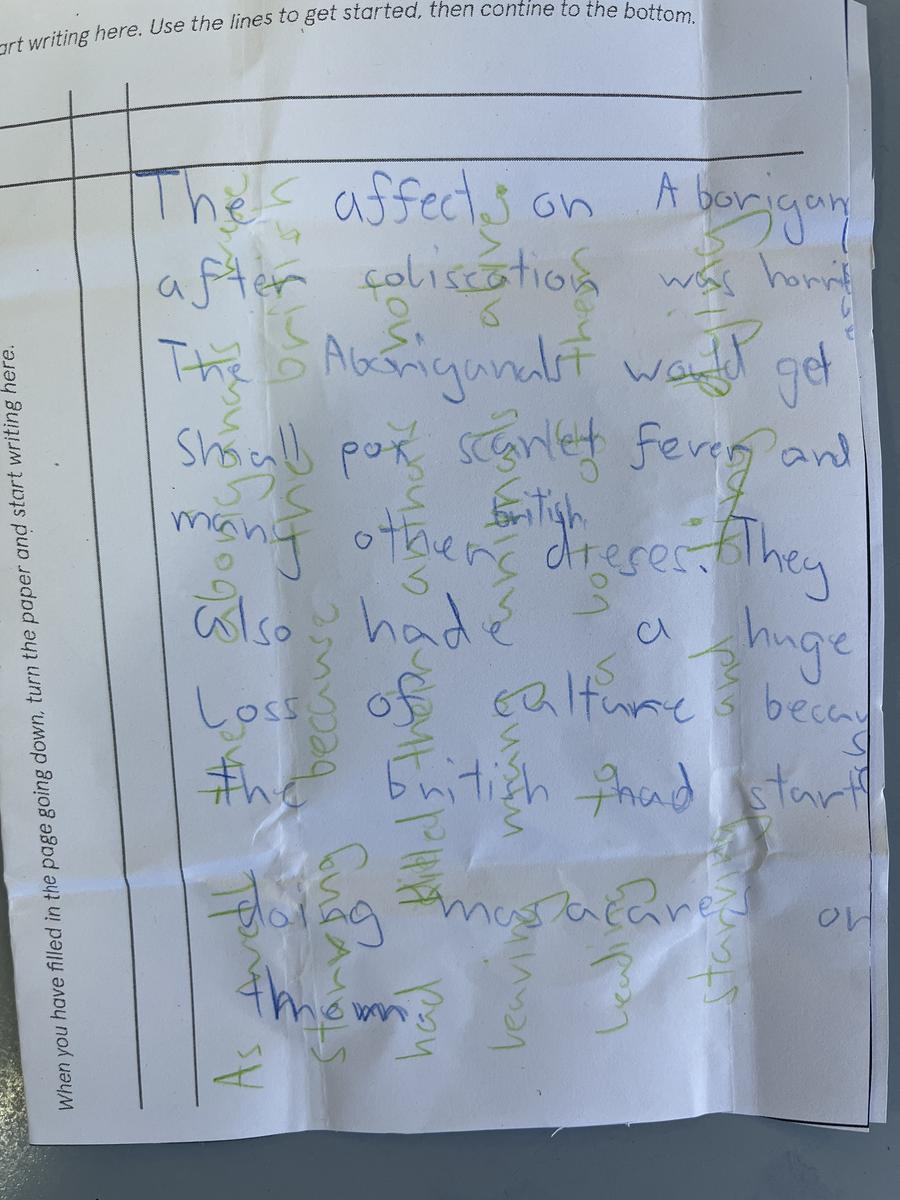 art writing here. Use the lines to get started, then contine to the bottom.
The affects on Aborigan
after coliscation was horrible
The Aboriganals would get
Small pox scarlet fever and
many other british dieses. They
also hade a huge
Loss of culture becaus
the british had start
doing masacares on
them.
When you have filled in the page going down, turn the paper and start writing here.
As well the aboriganals were
starving because the british
had their no
leaving alive
Leading to them
starving and